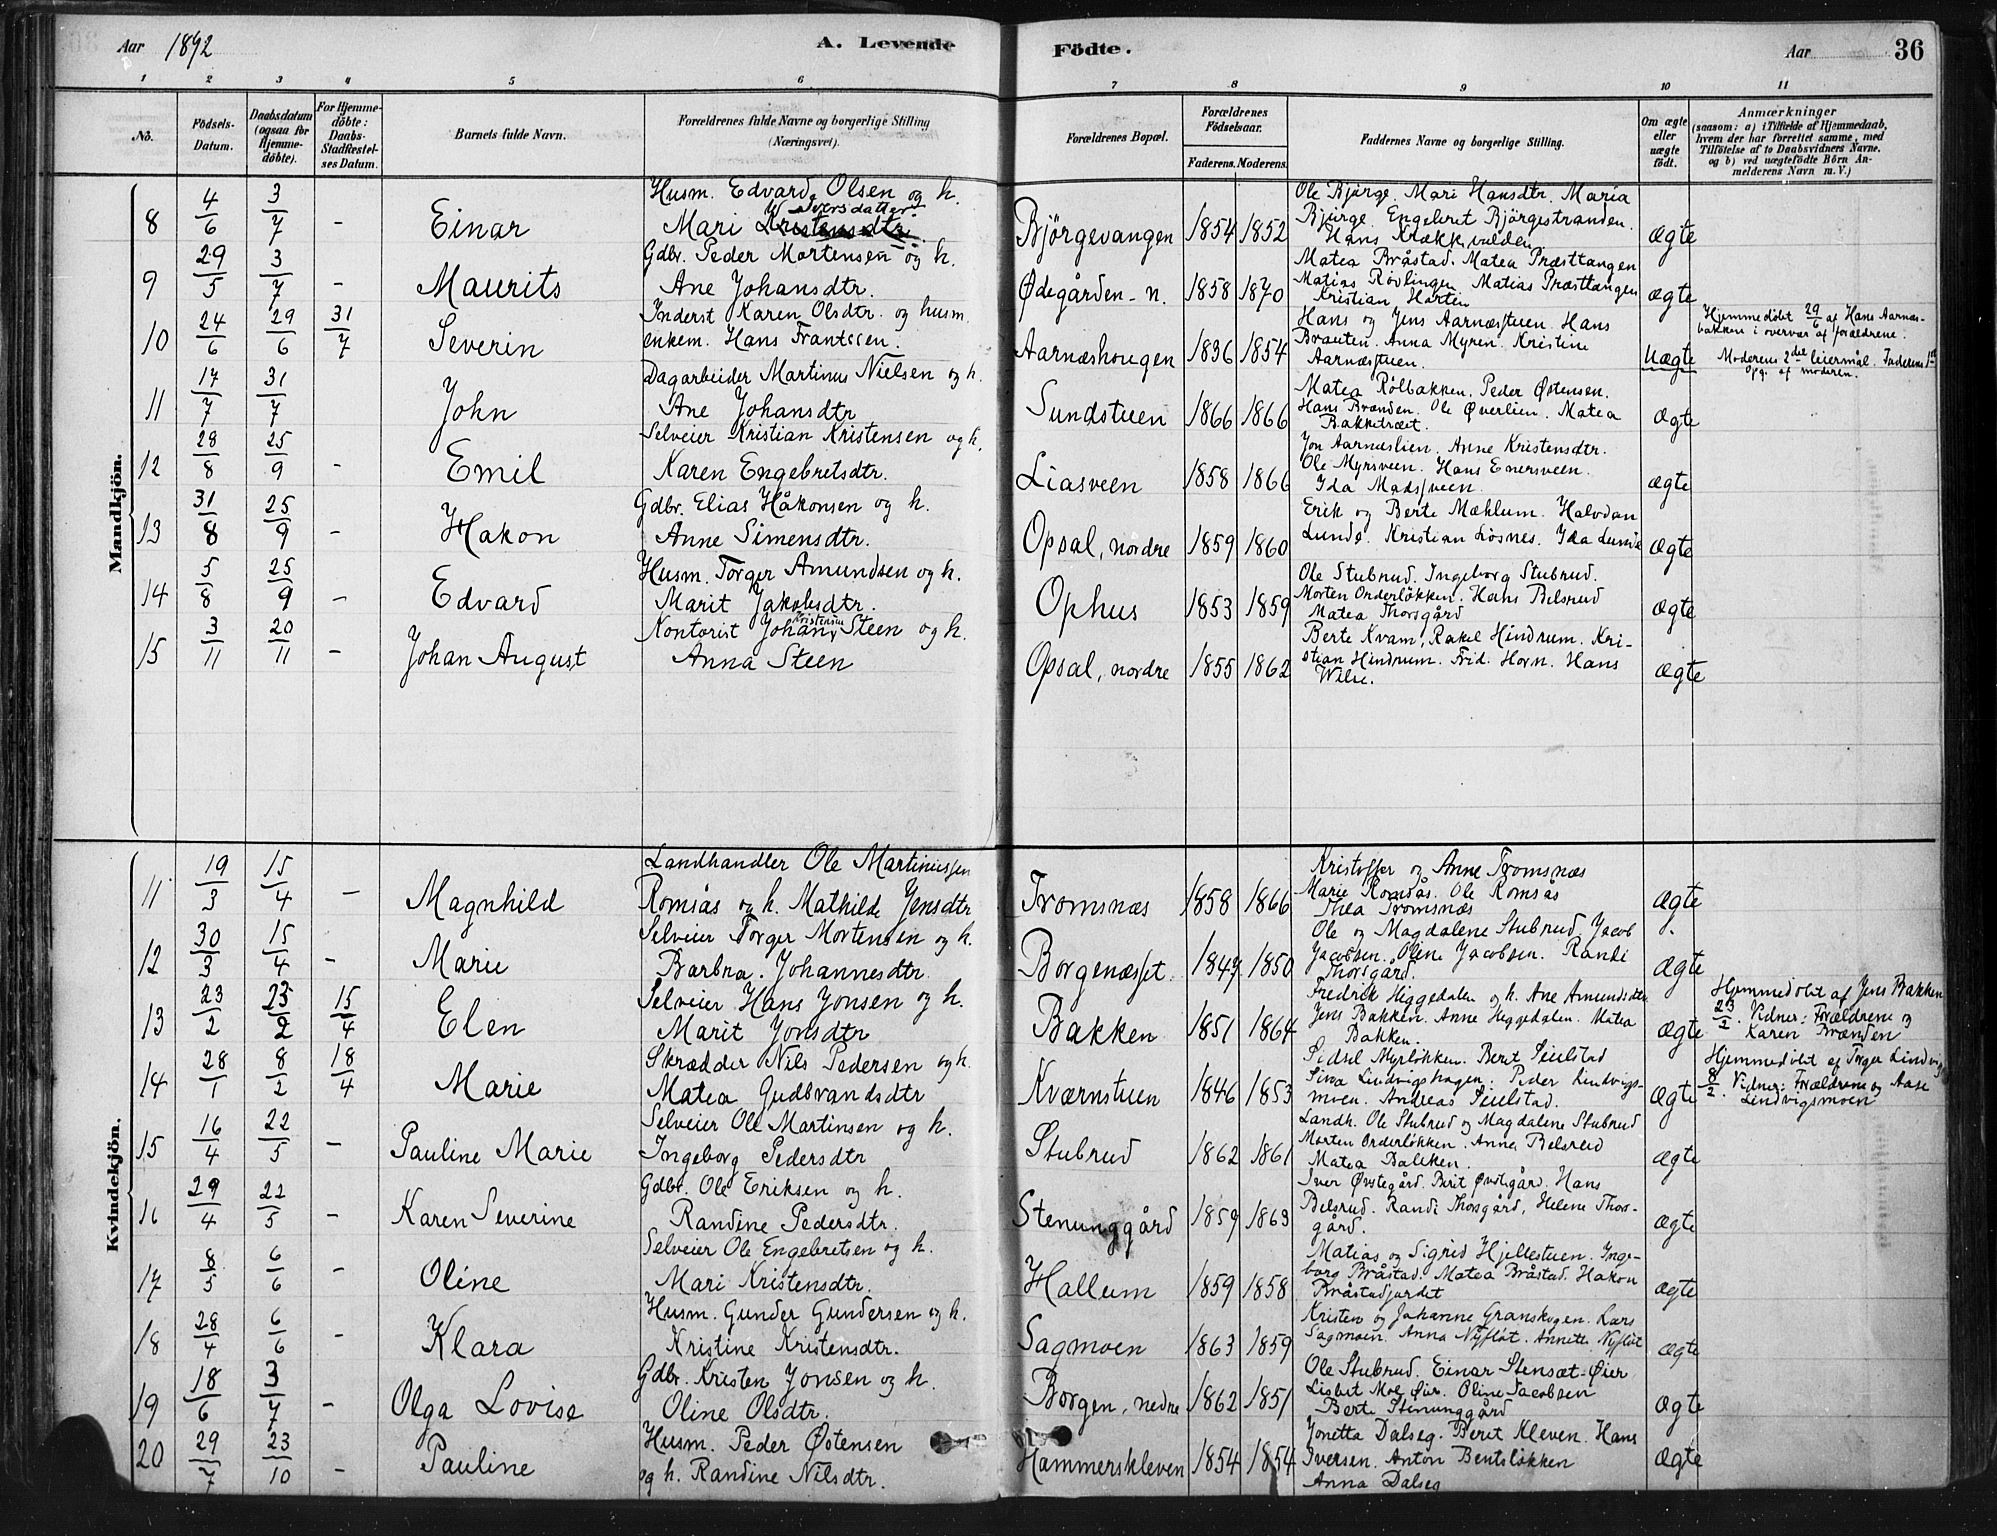 Aar 1892
A. Levende Födte.
Aar
36
1 2 3 4 5 6 7 8 9 10 11
No.
Födsels-Datum.
Daabsdatum (ogsaa for Hjemmedöbte).
For Hjemmedöbte: Daabs-Stadfæstelses Datum.
Barnets fulde Navn.
Forældrenes fulde Navne og borgerlige Stilling (Næringsvei).
Forældrenes Bopæl.
Forældrenes Födselsaar.
Faderens. Moderens.
Faddernes Navne og borgerlige Stilling.
Om ægte eller uægte födt.
Anmærkninger
(saasom: a) i Tilfælde af Hjemmedaab, hvem der har forrettet samme, med Tilföielse af to Daabsvidners Navne. og b) ved uægtefödte Börn Anmelderens Navn m.V.)
Mandkjön.
8 4/6 3/7 - Einar
Husm. Edvard Olsen og h.
Mari Kristensdtr. Iversdatter
Bjørgevangen 1854 1852
Ole Bjørge. Mari Hansdtr. Maria
Bjørge. Engebret Bjørgestranden.
Hans
ægte
9 29/5 3/7 - Maurits
Gdbr. Peder Mortensen og h.
Ane Johansdtr.
Ødegården - n. 1858 1870
Matea Bråstad. Matea Præsttangen
Matias Røvlingen. Matias Præsttangen
Kristian Horten
ægte
10 24/6 29/6 31/7 Severin
Inderst Karen Olsdtr. og husm.
enkem. Hans Frantssen.
Aarnæshougen 1836 1854
Hans og Jens Aarnæstuen. Hans
Brauten. Anna Myren. Kristine
Aarnæstuen.
Uægte
Hjemmedøbt 29/6 af Hans Aarnæs-
bakken i overvær af forældrene.
Moderens 2det leiermål. Faderens 1ste
Opg. af moderen.
11 17/7 31/7 John
Dagarbeider Martinus Nielsen og h.
Ane Johansdtr
Sundstuen 1866 1866
Matea Rølbakken. Peder Østensen.
Hans Brænden. Ole Øverlien. Matea
Bakketræet.
ægte
12 28/8 25/9 - Emil
Selveier Kristian Kristensen og h.
Karen Engebretsdtr.
Liasveen 1858 1866
Jon Aarnæslien. Anne Kristensdtr.
Ole Myrsveen. Hans Enersveen.
Ida Madssveen.
ægte
13 31/8 25/9 - Hakon
Gdbr. Elias Håkonsen og h.
Anne Simensdtr.
Opsal, nordre 1859 1860
Erik og Berte Mæhlum. Halvdan
Lunde. Kristian Løsnes. Ida Lunde
ægte
14 5/8 25/9 - Edvard
Husm. Torger Amundsen og h.
Marit Jakobsdtr.
Ophus 1853 1859
Ole Stubrud. Ingeborg Stubrud.
Morten Orderløkken. Hans Belsrud
Matea Thorsgård
ægte
15 3/11 20/11 - Johan August
Kontorist Johan Kristensen Steen og h.
Anna Steen
Opsal, nordre 1855 1862
Berte Kvam, Rakel Hindrum. Kri-
stian Hindrum. Frid. Horn. Hans
Wilse.
ægte
Kvindekjön.
11 19/3 15/4 - Magnhild
Landhandler Ole Martinussen
Romsås og h. Mathilde Jensdtr
Tromsnæs 1858 1866
Kristoffer og Anne Tromsnæs
Marie Romsås. Ole Romsås
Thea Tromsnæs
ægte
12 30/3 15/4 - Marie
Selveier Torger Mortensen og h.
Barbra Johannesdtr.
Borgenæsset. 1847 1850
Ole og Magdalene Stubrud, Jacob
Jacobsen. Oline Jacobsen. Randi
Thorsgård.
ægte
13 23/2 23/2 15/4 Elen
Selveier Hans Jonsen og h.
Marit Jonsdtr
Bakken 1851 1864
Fredrik Heggedalen og h. Ane Amundsdtr
Jens Bakken. Anne Heggedalen. Matea
Bakken.
ægte
Hjemmedøbt af Jens Bakken
23/2. Vidner: Forældrene og
Karen Brænden
14 28/1 8/2 18/4 Marie
Skrædder Nils Pedersen og h.
Matea Gudbrandsdtr
Kværnstuen 1846 1853
Sidsel Myrløkken. Berit Seielstad
Siva Lindvigshagen. Peder Lindvigs-
moen. Andreas Seielstad.
ægte
Hjemmedøbt af Torger Lindvig
8/2. Vidner: Forældrene og Aase
Lindvigsmoen
15 16/4 22/5 - Pauline Marie
Selveier Ole Martinsen og h.
Ingeborg Pedersdtr
Stubrud 1862 1861
Landh. Ole Stubrud og Magdalene Stubrud
Morten Orderløkken. Anna Belsrud
Matea Bakken.
ægte
16 29/4 22/5 - Karen Severine
Gdbr. Ole Eriksen og h.
Randine Pedersdtr.
Stenunggård 1859 1863
Iver Øvstegård. Berit Øvstegård. Hans
Belsrud. Randi Thorsgård, Helene Thors-
gård.
ægte
17 8/5 6/6 - Oline
Selveier Ole Engebretsen og h.
Mari Kristensdtr.
Hallum 1859 1858
Matias og Sigrid Hjellestuen. Inge-
borg Bråstad. Matea Bråstad. Hakon
Bråstadjordet
ægte
18 28/4 6/6 - Klara
Husm. Gunder Gundersen og h.
Kristine Kristensdtr.
Sagmoen 1863 1859
Kristen og Johanne Granskogen. Lars
Sagmoen. Anna Nyfløt. Annette Nyfløt
ægte
19 18/6 3/7 - Olga Lovise
Gdbr. Kristen Jonsen og h.
Oline Olsdtr.
Borgen, nedre 1862 1851
Ole Stubrud. Einar Stensæt-Øier
Lisbet Moe Øier. Oline Jacobsen
Berte Stenunggård
ægte
20 29/7 23/10 - Pauline
Husm. Peder Østensen
og h. Randine Nilsdtr.
Hammerskleven 1854 1854
Jonetta Dalseg. Berit Kleven. Hans
Iversen. Anton Bentsløkken
Anna Dalseg
ægte